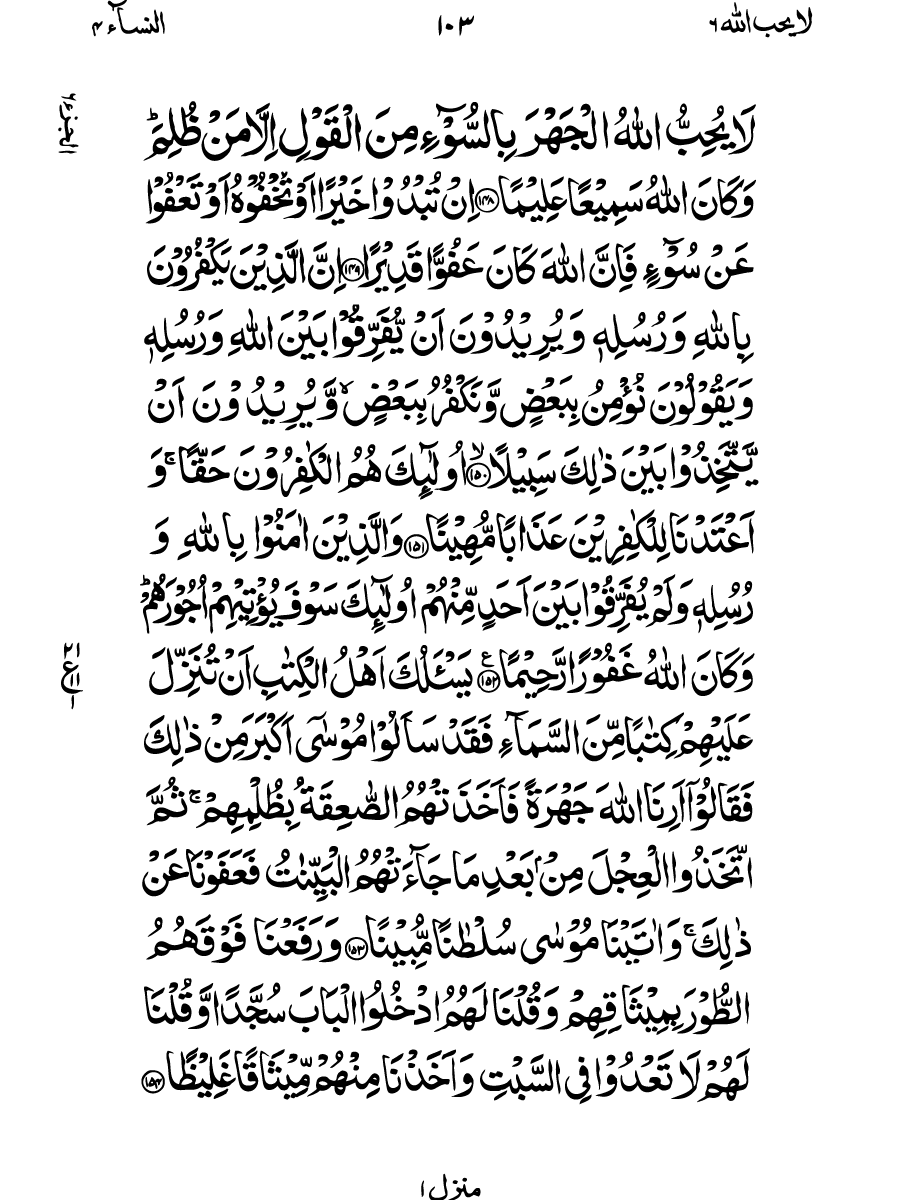 لا یحب اللہ ۶
۱۰۳
النسآء ۴
الجزء ۶
لَا يُحِبُّ اللّٰهُ الْجَهْرَ بِالسُّوْٓءِ مِنَ الْقَوْلِ اِلَّا مَنْ ظُلِمَ ؕ
وَكَانَ اللّٰهُ سَمِيْعًا عَلِيْمًا ﴿۱۴۸﴾ اِنْ تُبْدُوْا خَيْرًا اَوْ تُخْفُوْهُ اَوْ تَعْفُوْا
عَنْ سُوْٓءٍ فَاِنَّ اللّٰهَ كَانَ عَفُوًّا قَدِيْرًا ﴿۱۴۹﴾ اِنَّ الَّذِيْنَ يَكْفُرُوْنَ
بِاللّٰهِ وَرُسُلِهٖ وَيُرِيْدُوْنَ اَنْ يُّفَرِّقُوْا بَيْنَ اللّٰهِ وَرُسُلِهٖ
وَيَقُوْلُوْنَ نُؤْمِنُ بِبَعْضٍ وَّنَكْفُرُ بِبَعْضٍ ۙ وَّيُرِيْدُوْنَ اَنْ
يَّتَّخِذُوْا بَيْنَ ذٰلِكَ سَبِيْلًا ۙ﴿۱۵۰﴾ اُولٰٓئِكَ هُمُ الْكٰفِرُوْنَ حَقًّا ۚ وَ
اَعْتَدْنَا لِلْكٰفِرِيْنَ عَذَابًا مُّهِيْنًا ﴿۱۵۱﴾ وَالَّذِيْنَ اٰمَنُوْا بِاللّٰهِ وَ
رُسُلِهٖ وَلَمْ يُفَرِّقُوْا بَيْنَ اَحَدٍ مِّنْهُمْ اُولٰٓئِكَ سَوْفَ يُؤْتِيْهِمْ اُجُوْرَهُمْ ؕ
وَكَانَ اللّٰهُ غَفُوْرًا رَّحِيْمًا ﴿۱۵۲﴾ع يَسْـَٔلُكَ اَهْلُ الْكِتٰبِ اَنْ تُنَزِّلَ
۲۱
ع ۱۱
۱
عَلَيْهِمْ كِتٰبًا مِّنَ السَّمَآءِ فَقَدْ سَاَلُوْا مُوْسٰٓى اَكْبَرَ مِنْ ذٰلِكَ
فَقَالُوْٓا اَرِنَا اللّٰهَ جَهْرَةً فَاَخَذَتْهُمُ الصّٰعِقَةُ بِظُلْمِهِمْ ۚ ثُمَّ
اتَّخَذُوا الْعِجْلَ مِنْۢ بَعْدِ مَا جَآءَتْهُمُ الْبَيِّنٰتُ فَعَفَوْنَا عَنْ
ذٰلِكَ ۚ وَاٰتَيْنَا مُوْسٰى سُلْطٰنًا مُّبِيْنًا ﴿۱۵۳﴾ وَرَفَعْنَا فَوْقَهُمُ
الطُّوْرَ بِمِيْثَاقِهِمْ وَقُلْنَا لَهُمُ ادْخُلُوا الْبَابَ سُجَّدًا وَّقُلْنَا
لَهُمْ لَا تَعْدُوْا فِى السَّبْتِ وَاَخَذْنَا مِنْهُمْ مِّيْثَاقًا غَلِيْظًا ﴿۱۵۴﴾
منزل ۱